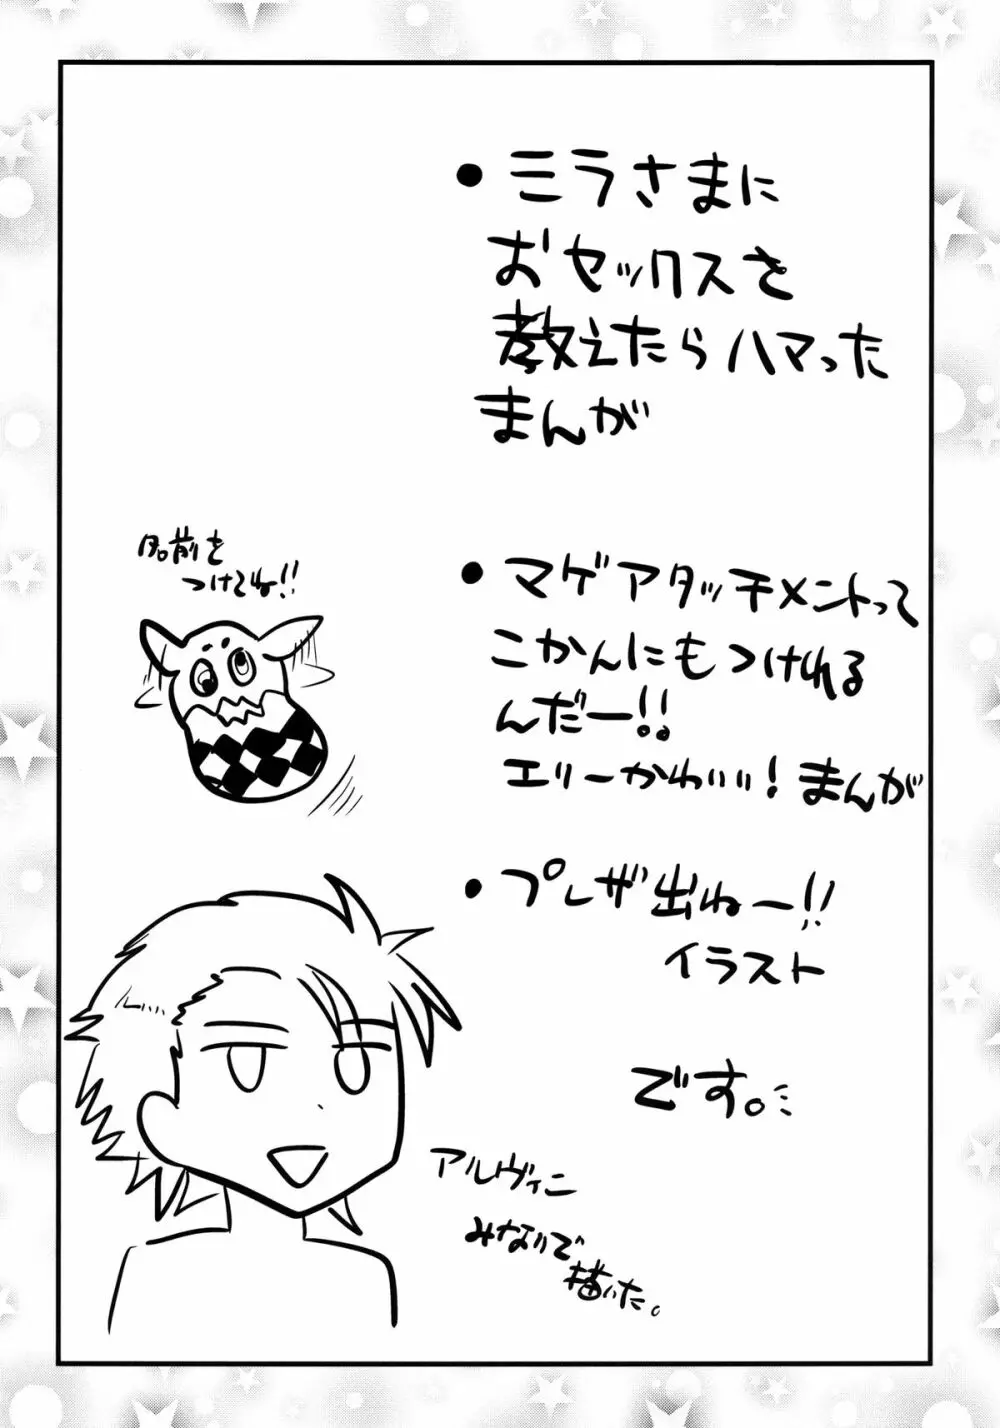 • ミラさまに
おセックスを
教えたらハマった
まんが
名前を
つけてね!!
• マゲアタッチメントって
こかんにもつけれる
んだー!!
エリーかわいい! まんが
• プレザ出ねー!!
イラスト
です。
アルヴィン
みないで
描いた。